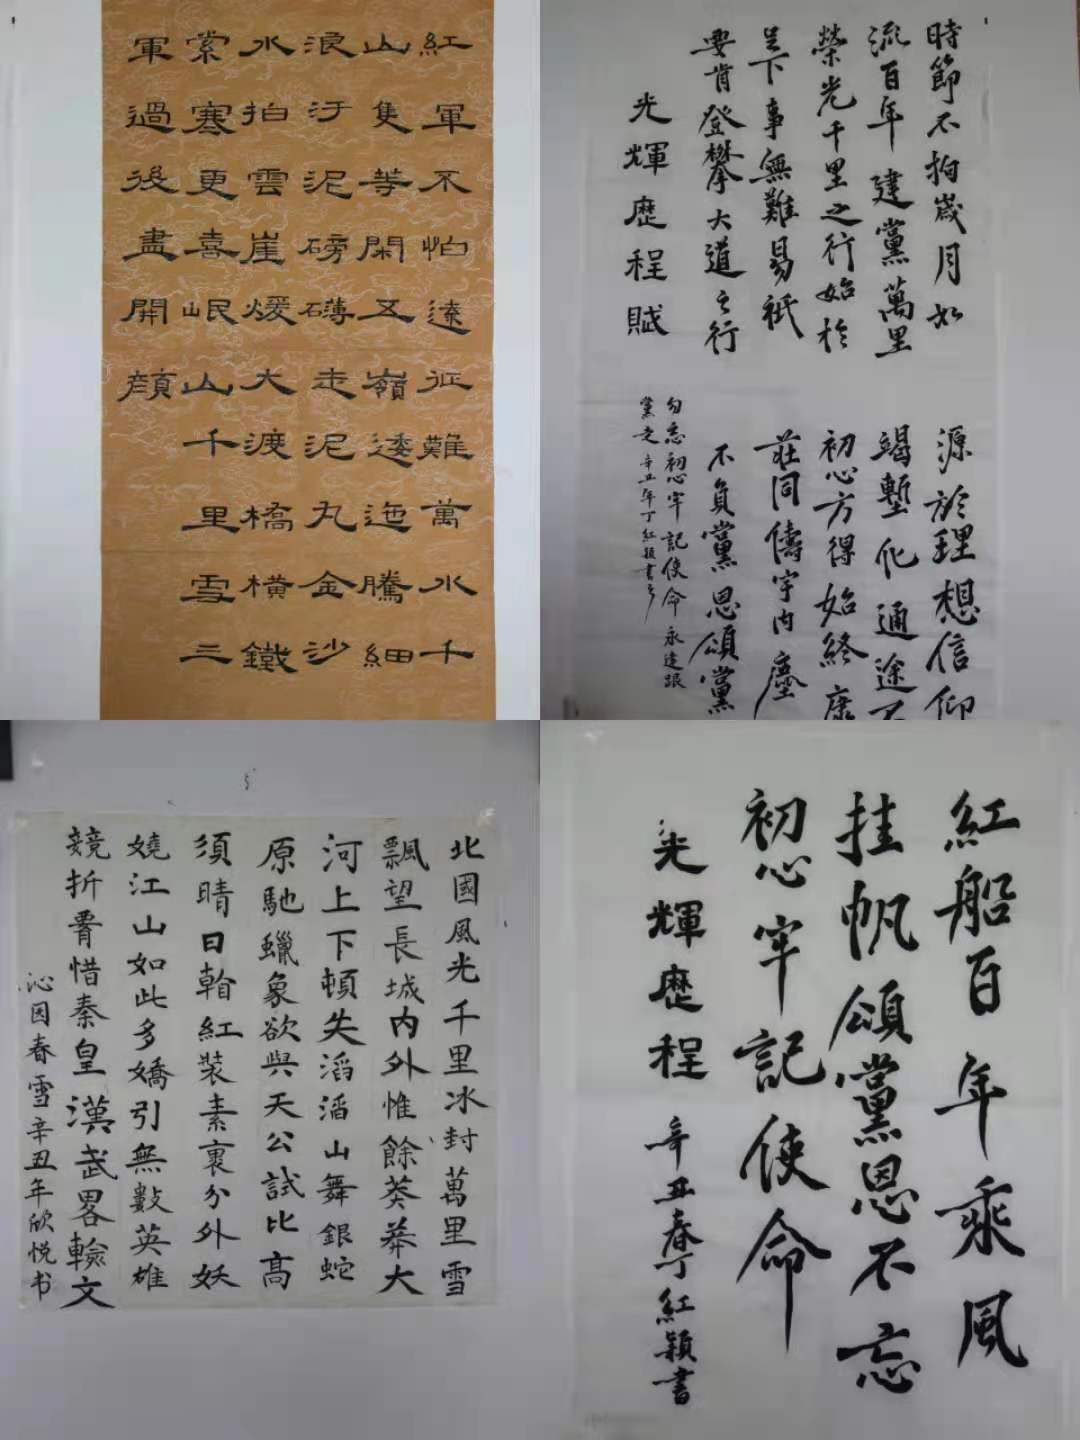 紅軍不怕遠征難萬水千
山隻等閑五嶺逶迤騰細
浪汙泥磅礴走泥丸金沙
水拍雲崖煖大渡橋橫鐵
索寒更喜岷山千里雪三
軍過後盡開顏
時節不拘歲月如
流百年建黨萬里
榮光千里之行始於
足下事無難易祇
要肯登攀大道之行
光輝歷程賦
源於理想信仰
竭塹化通途不
初心方得始終康
莊同儔宇內塵
不負黨恩頌黨
勿忘初心牢記使命永遠跟
黨走辛丑年丁紅穎書
北國風光千里冰封萬里雪
飄望長城內外惟餘莽莽大
河上下頓失滔滔山舞銀蛇
原馳蠟象欲與天公試比高
須晴日看紅裝素裹分外妖
嬈江山如此多嬌引無數英雄
競折腰惜秦皇漢武畧輸文
沁园春雪辛丑年欣悦书
紅船百年乘風
挂帆頌黨恩不忘
初心牢記使命
光輝歷程 辛丑春丁紅穎書